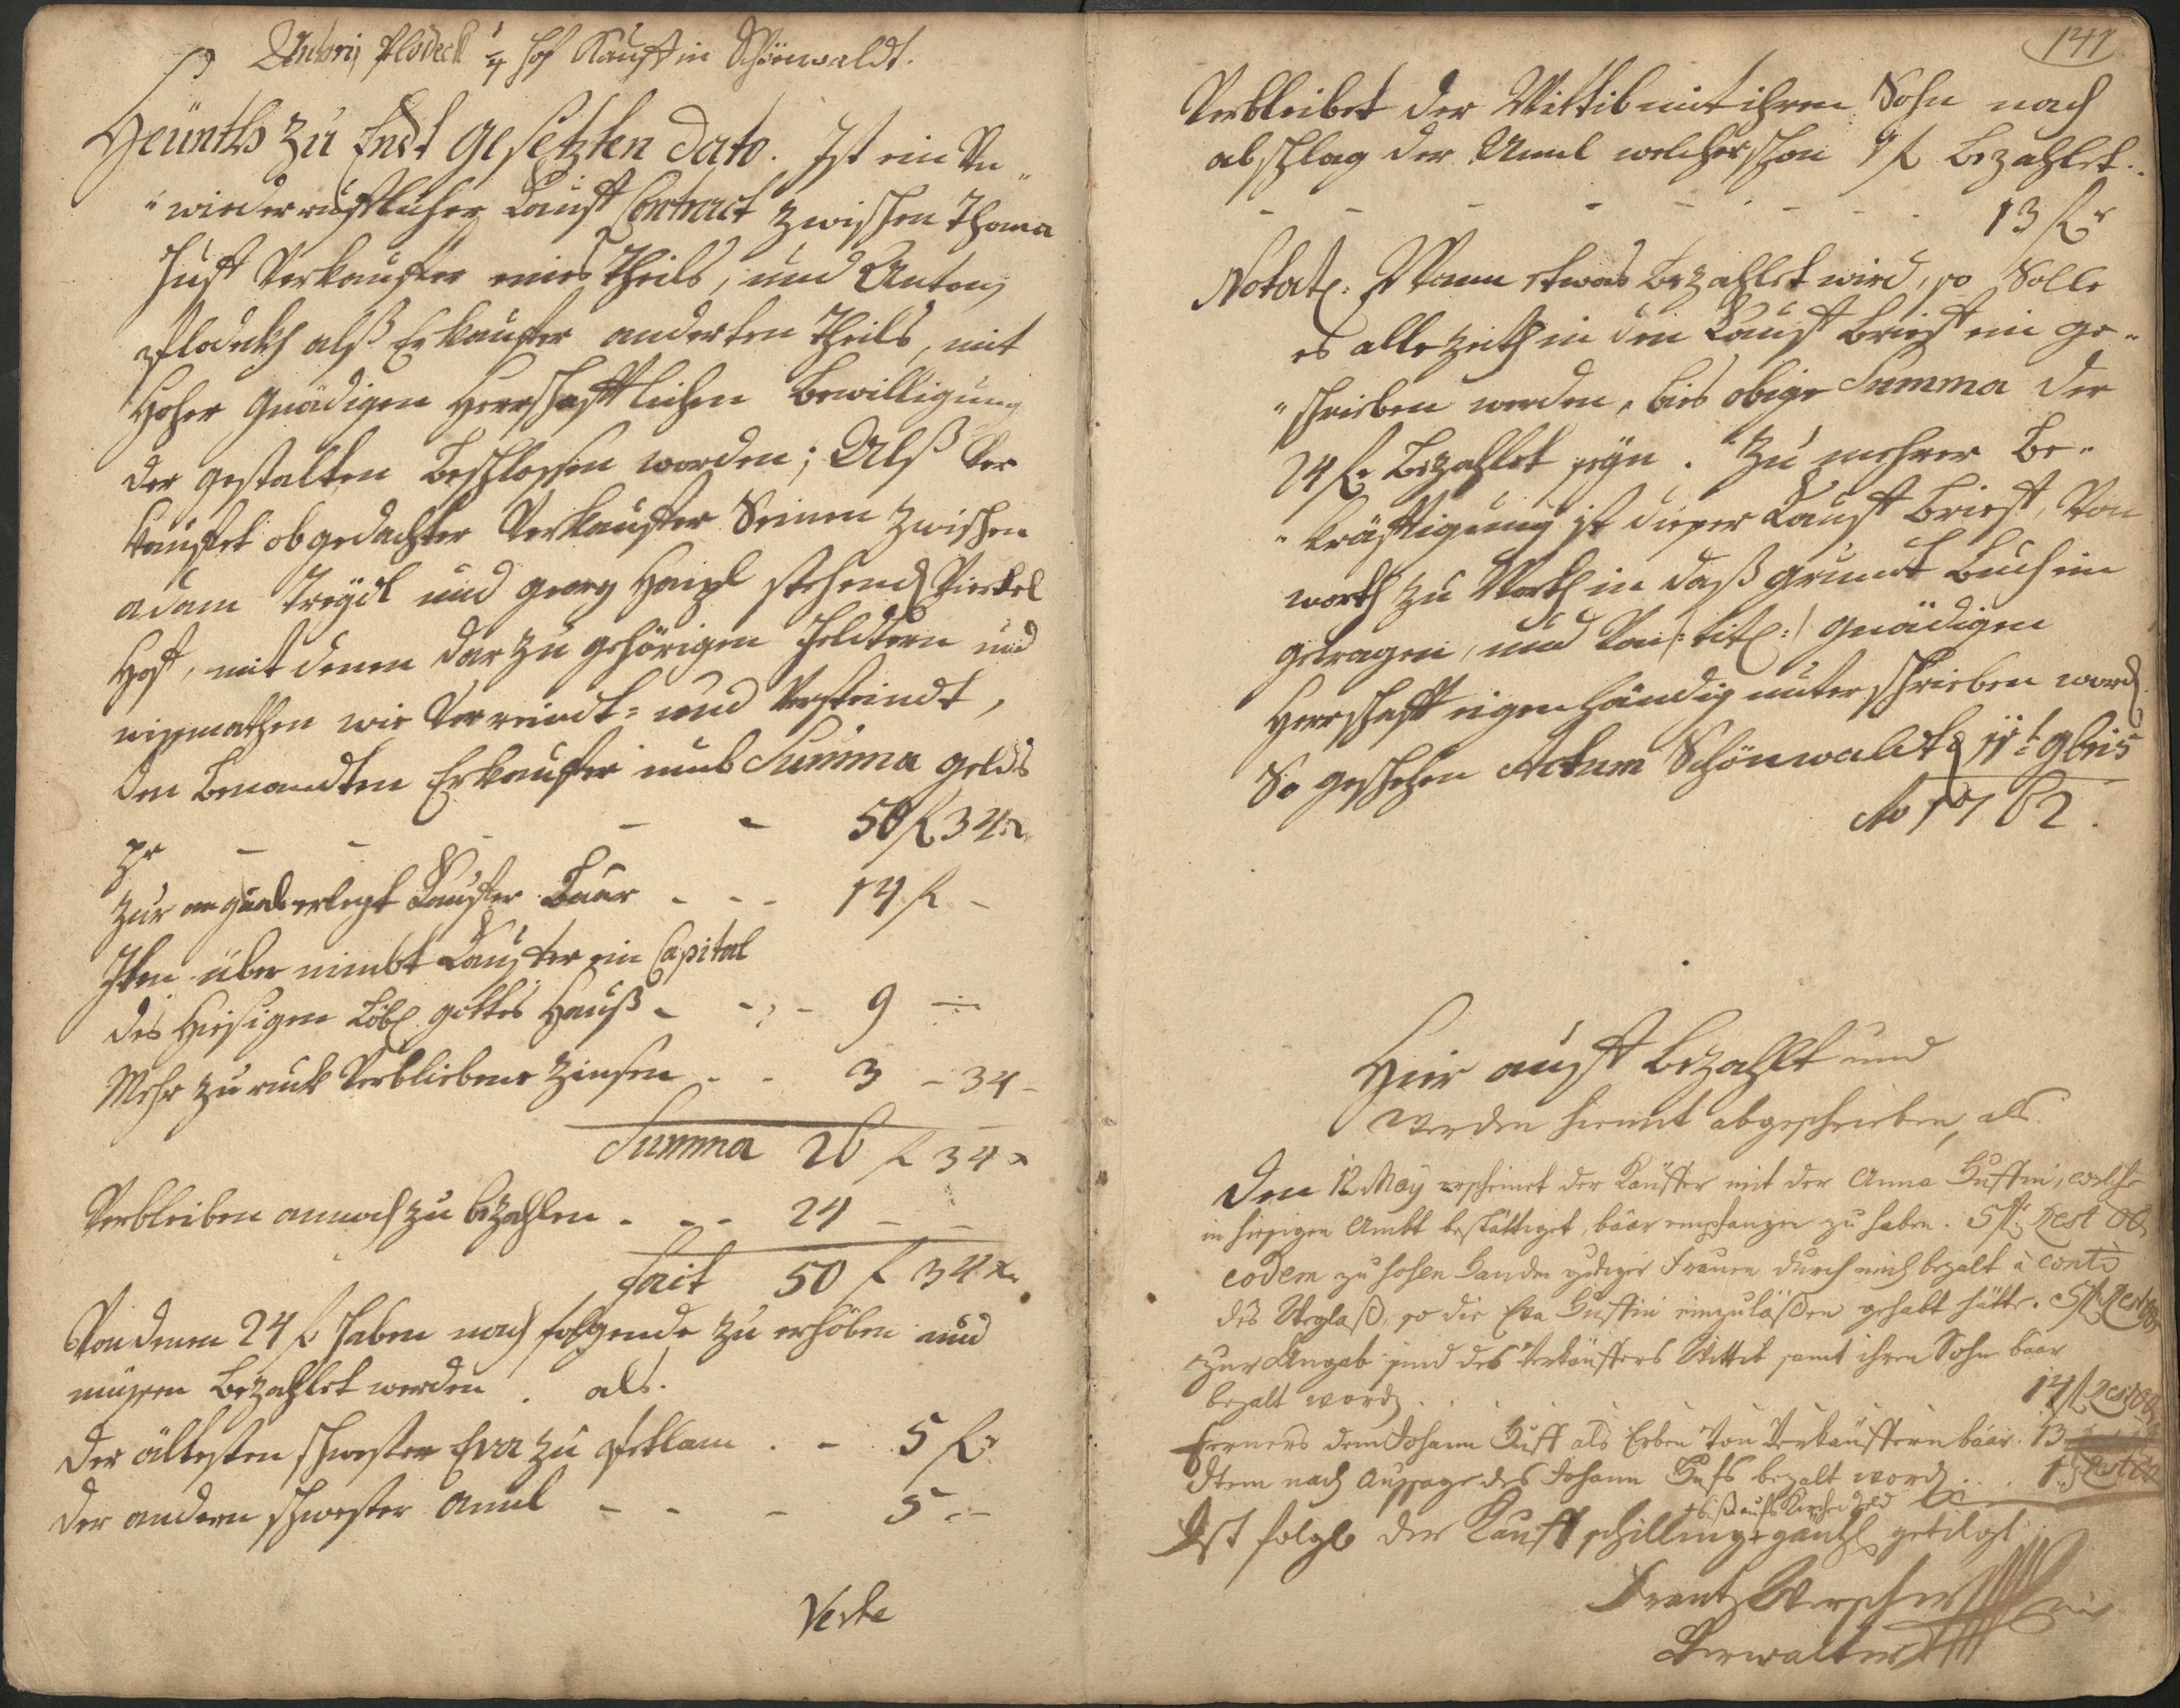 Antonij Plodeck ¼ hof Kauft in Schönwaldt.
Heünth zu Endt gesetzten dato. Ist ein Un„
„wiederrufflicher Kauff Contract zwischen Thoma
Just Verkauffer eines Theils, und Antonj
Plodekh alß Erkauffer anderten Theils, mit
Hoher Gnädigen Herrschafftlichen Bewilligung
der gestalten beschlossen worden; Alß Ver
kauffet obgedachter Verkauffer Seinen zwischen
adam und georg stehendt Viertel
Hoff, mit denen darzu gehörigen Feldtern und
wie Verreindt= und Versteindt,
den benandten Erkauffer umb Summa gelds
pr - - - - - 50 f 34 xr.
zur angaab erlegt Kauffer baar - - - 14 f -
Item über nimbt Kauffer ein Capital
des Hiesigen Löbl. gottes Hauß - - - 9 -
Mehr zu ruck Verbliebene Zinsen - - 3 - 34 -
Summa 26 f 34 x
Verbleiben annoch zu bezahlen - - - 24 - -
facit 50 f 34 xr.
Von denen 24 f haben nach folgende zu erhöben und
müssen bezahlet werden. als.
der ältesten schwester Eva zu . - 5 f.
der andern schwester Annl - - - 5 - -
Verte
141
Verbleibet der Wittib mit ihren Sohn nach
abschlag der Annl welcher schon 1 f bezahlet.
- - - - - - - 13 f.
Notat. Wann etwas bezahlet wird, so Solle
es allezeith in den Kauff brieff ein ge„
„schrieben werden, bies obige Summa der
24 f. bezahlet seyn. Zu mehrer Be„
„kräfftigung ist dieser Kauff Brieff, Von
worth zu Worth in daß grundt Buch ein
getragen, und Von /: titl: / Gnädigen
Herrschafft eigenhändig unterschrieben word.
So geschehen Actum Schönwaldt d 11t 9bris
Ao 1762.
Hier auff bezahlt und
werden hiemit abgeschrieben, als.
Den 12 May erscheinet der Käuffer mit der Anna Justin, welche
in hiesigen Ambt bestättiget, baar empfangen zu haben. 5 f.
eodem zu hohen Handen gdiger Frauen durch mich bezalt à conto
des Weglaß, so die Eva Justin einzuläßen gehabt hätte. 5 f.
zur Angab sind des Verkäuffers Wittib samt ihren Sohn baar
bezalt word. . . . . . . 14 f
Ferners dem Johann Just als Erben Von Verkäuffern baar. 13
Item nach Aussage des Johann Justs bezalt word. . . . 1
+ biß aufs Kirchegeld
Ist folgl. der Kauffschilling + gäntzl. getilgt
Frantz
Verwalter